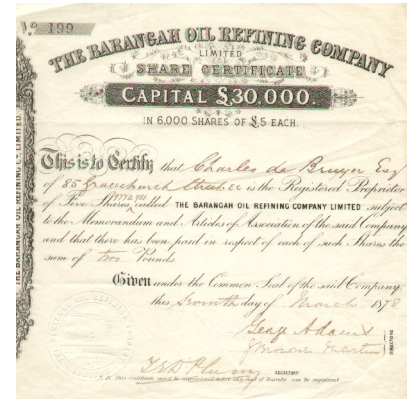 No 199
THE BARANGAH OIL REFINING COMPANY
LIMITED
SHARE CERTIFICATE
CAPITAL £30,000.
IN 6,000 SHARES OF £5 EACH.
This is to Certify that Charles de Bruyn Esq
of 85 Gracechurch Street EC is the Registered Proprietor
of Five Shares called THE BARANGAH OIL REFINING COMPANY LIMITED subject
to the Memorandum and Articles of Association of the said Company
and that there has been paid in respect of each of such Shares the
sum of two Pounds.
Given under the Common Seal of the said Company
this Seventh day of March 1878
Geo. Adams
J Brown Martin
DIRECTORS
SECRETARY
N.B. This certificate must be surrendered before any deed of transfer can be registered
THE BARANGAH OIL REFINING CO. LIMITED.